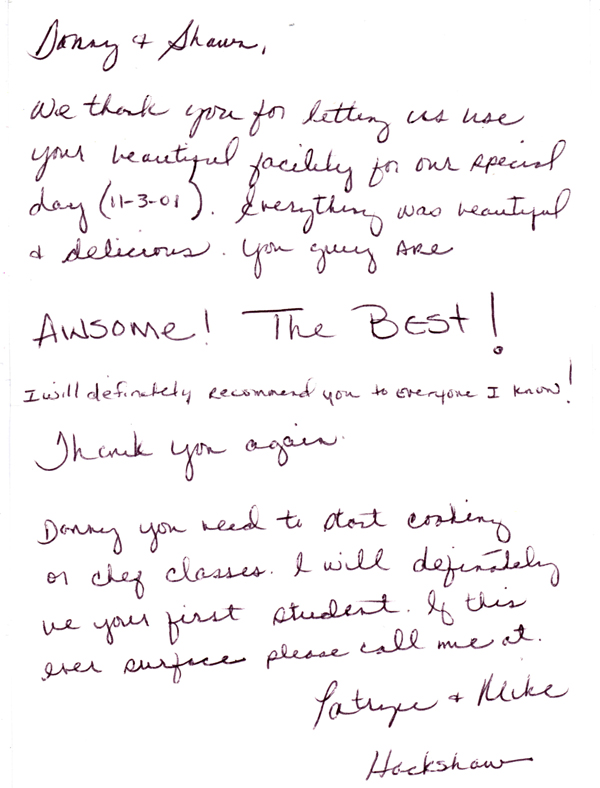 Donny & Shawn,
We thank you for letting us use
your beautiful facility for our special
day (11-3-01). Everything was beautiful
& delicious. You guys ARE
AWSOME! The BEST!
I will definetely recommend you to everyone I know!
Thank you again.
Donny you need to start cooking
or chef classes. I will definately
be your first student. If this
ever surface please call me at.
& Mike
Hackshaw